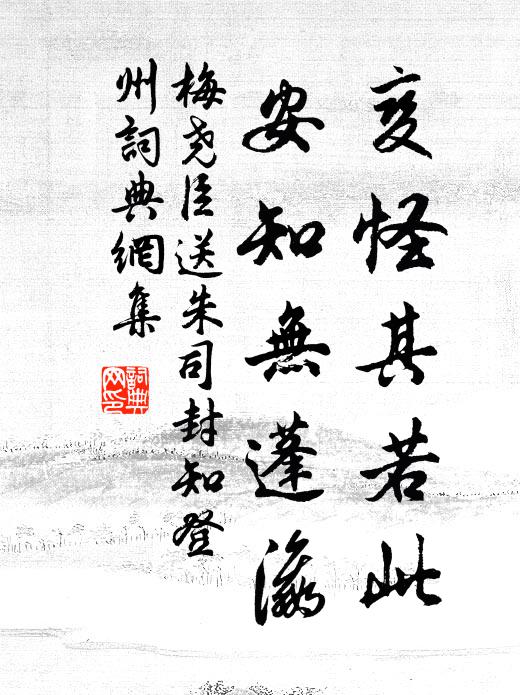 变怪其若此
安知無蓬瀛
梅尧臣送朱司封知登
州詞典網集
詞典
网印